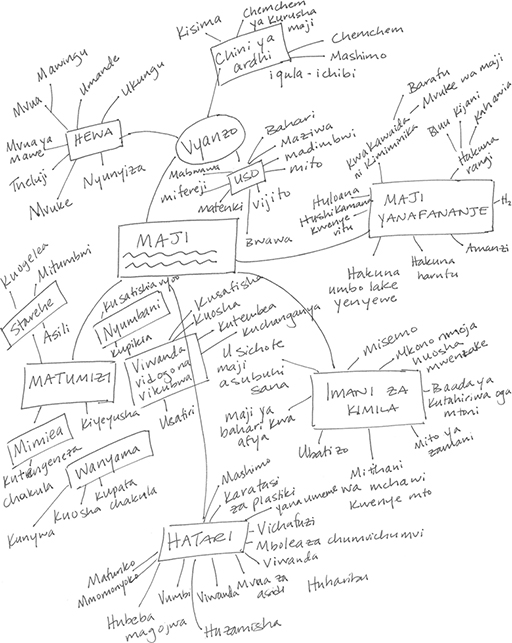 Chemchem
ya kurusha
maji
Kisima
Chini ya
ardhi
Chemchem
Mashimo
iqula - ichibi
Mawingu
Umande
Ukungu
Mvua
HEWA
Mvua ya
mawe
Theluji
Mvuke
Nyunyiza
Vyanzo
USO
Bahari
Maziwa
madimbwi
mito
Vijito
Bwawa
Matenki
mifereji
Barafu
Mvuke wa maji
Kwa kawaida
ni kimiminika
Buluu Kijani
Kahawia
Hakuna
rangi
MAJI
YANAFANANJE
H2
Amanzi
Hakuna
harufu
Hakuna
umbo lake
yenyewe
Huloana
Hushikamana
kwenye
vitu
MAJI
Kuogelea
Mitumbwi
Starehe
Asili
MATUMIZI
Kusafishia vyoo
Nyumbani
Kupikia
Viwanda
vidogo na
vikubwa
Kusafisha
Kuosha
Kutembea
Kuchanganya
Usafiri
Kiyeyusha
Mimea
Kutengeneza
chakula
Wanyama
Kupata
chakula
Kuosha
Kunywa
IMANI ZA
KIMILA
misemo
Mkono mmoja
huosha
mwenzake
Baada ya
kutahiriwa oga
mtoni
Mito ya
zamani
Mitihani
wa mchawi
kwenye mto
Ubatizo
Maji ya
bahari kwa
afya
Usichote
maji
asubuhi
sana
HATARI
Mashimo
Karatasi
za plastiki
yana umeme
Vichafuzi
Mbolea za chumvichumvi
Viwanda
Huharibu
Mvua za
asidi
Viwanda
Huzamisha
Vumbi
Hubeba
magojwa
Mmomonyoko
Mafuriko